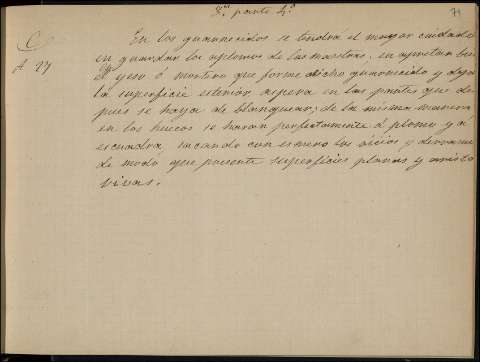 3.ª parte 4.º
71
En los guarnecidos se tendra el mayor cuidado
A 27
en guardar los aplomos de las maestras, en apretar bien
El yeso ó mortero que forme dicho guarnecido y deja
la superficie esterior aspera en las partes que des
pues se haya de blanquear; de la misma manera
en los huecos se haran perfectamente á plomo y á
escuadra, sacando con esmero los
de modo que presente superficies planas y arista
vivas.